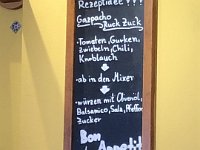 Rezeptidee ???
Gazpacho
Ruck Zuck
• Tomaten, Gurken,
Zwiebeln, Chili,
Knoblauch
• ab in den Mixer
• würzen mit Olivenöl,
Balsamico, Salz, Pfeffer
Zucker
Bon
Appetit